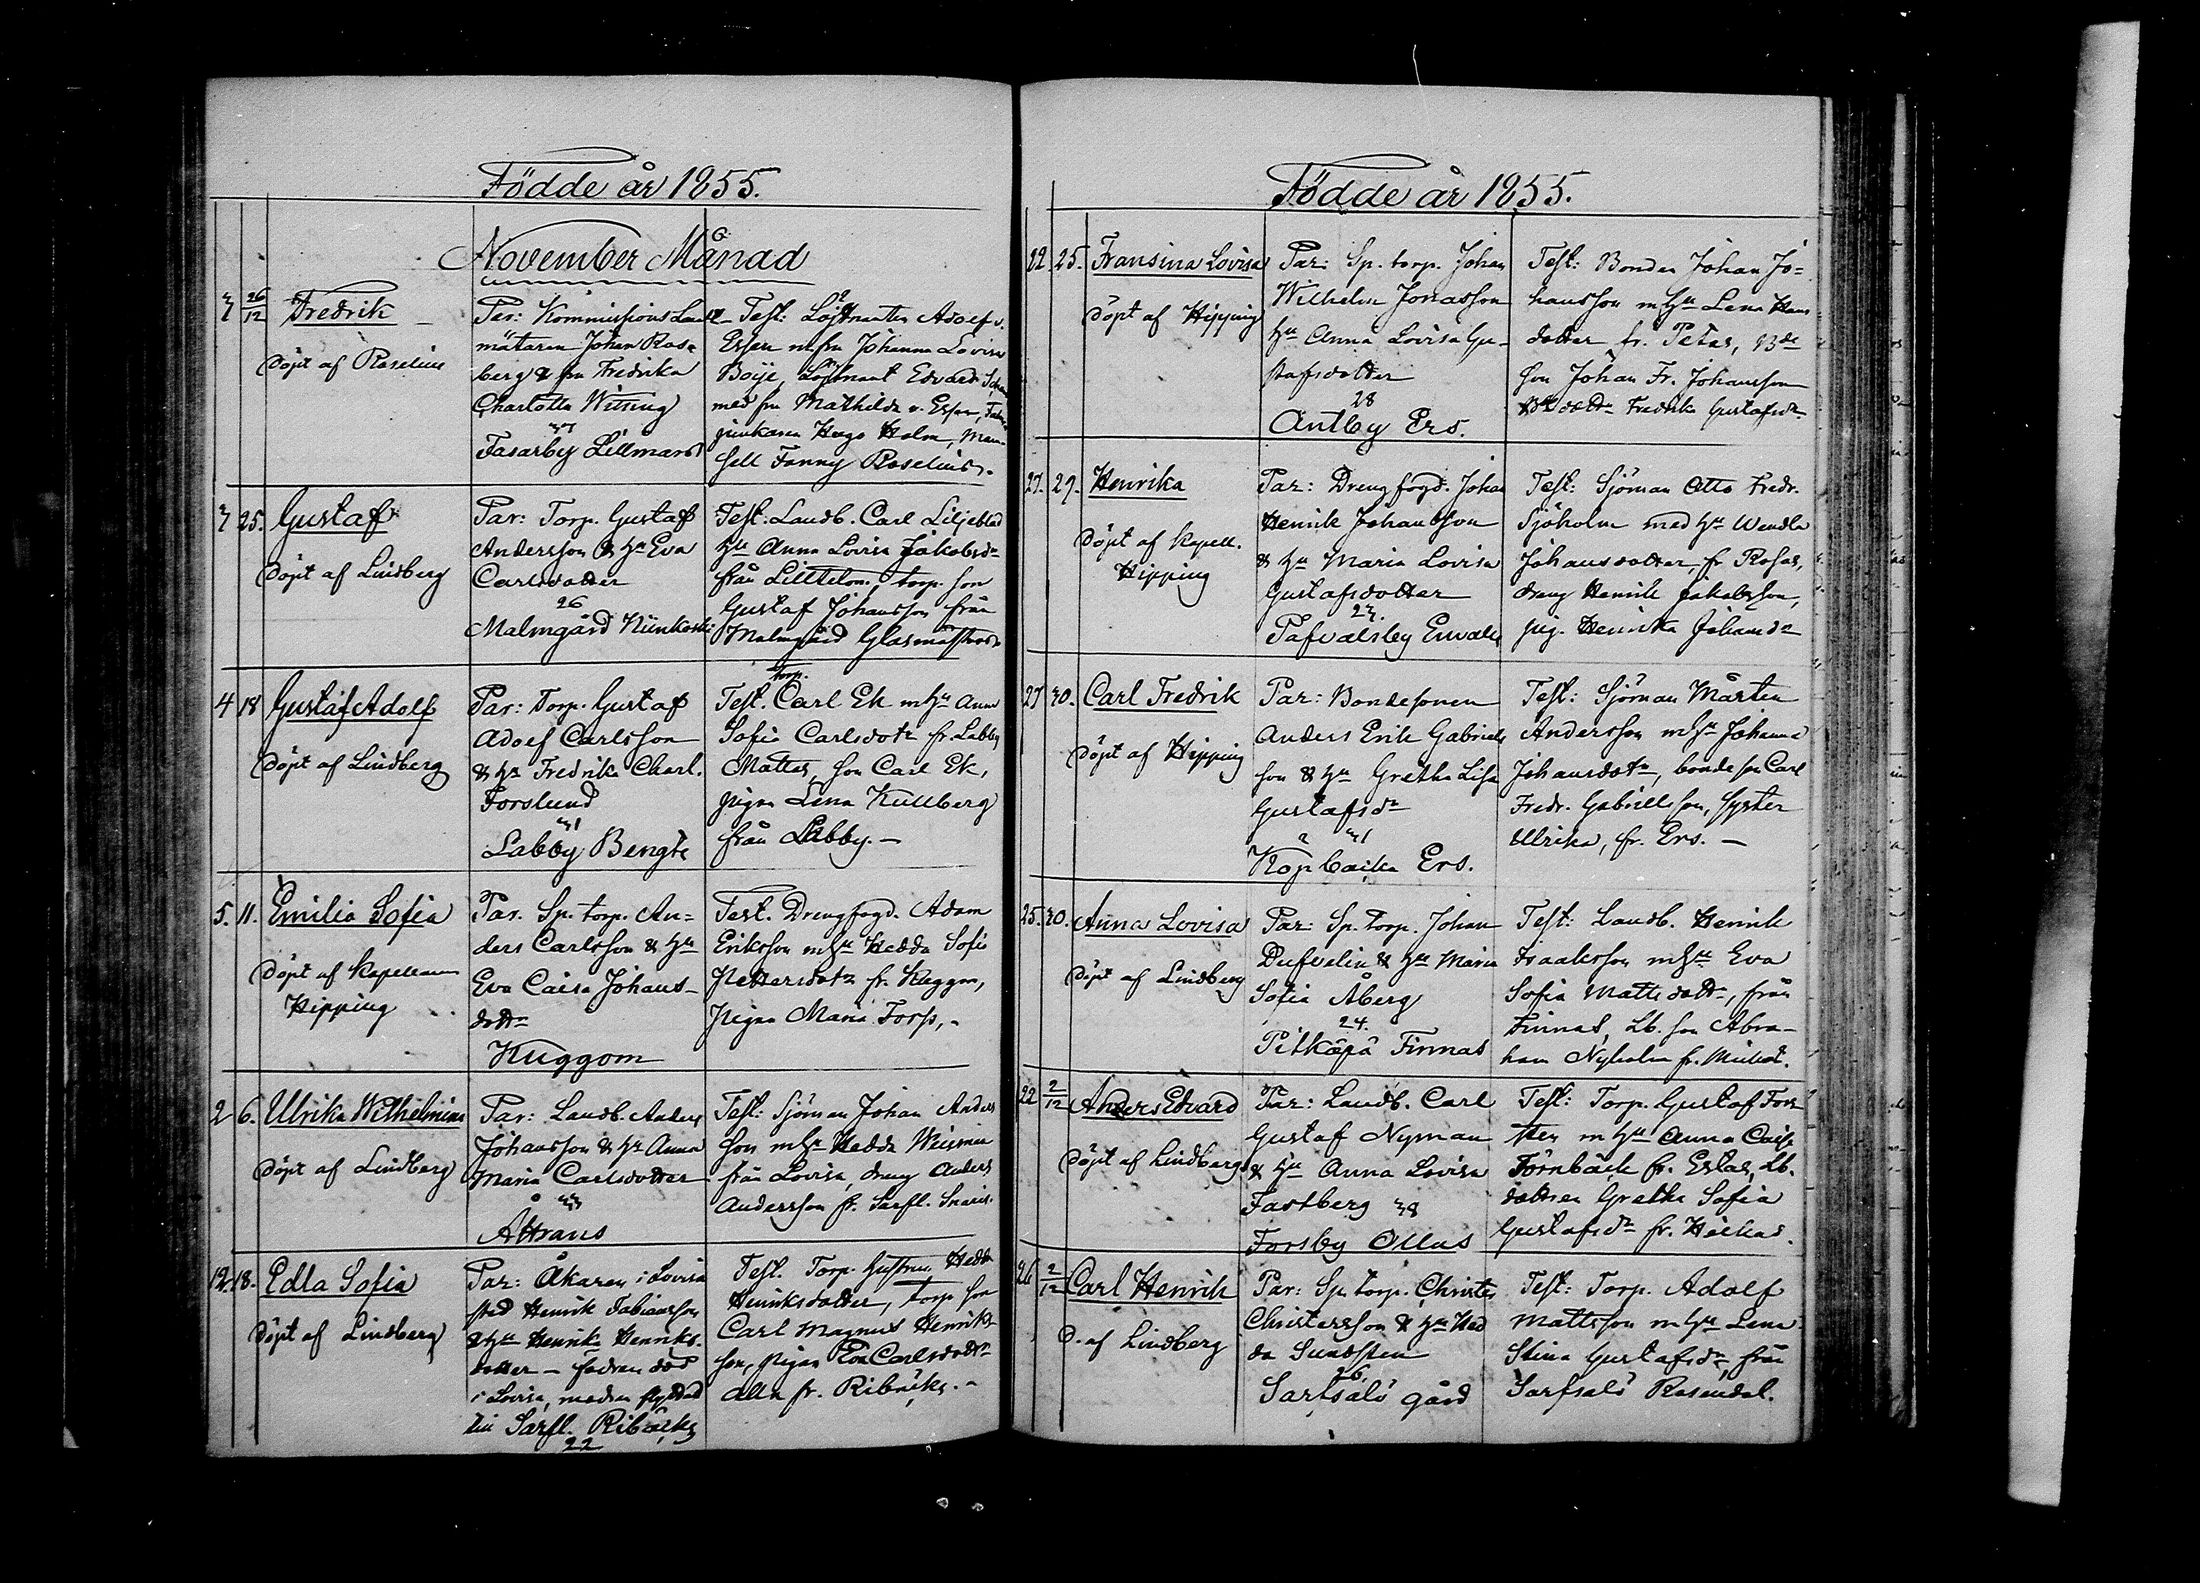 Födde år 1855.
November Månad
3 26/12 Fredrik
Döpt af Roselius
Par: Kommissions Landt-
mätaren Johan Rose
berg & fru Fredrika
Charlotta Witting
33
Tasarby Lillmars
Test: Löjtnanten Adolf v.
Essen m fru Johanna Lovisa
Boije, Löjtnant Edvard
med fru Mathilda v. Essen,
junkaren Hugo Holm, Mam-
sell Fanny Roselius.
3 25. Gustaf
Döpt af Lindberg
Par: Torp. Gustaf
Andersson & Hu Eva
Carlsdotter
26
Malmgård Niinkoski
Test: Landb. Carl Liljeblad
Hu Anna Lovisa Jakobsdr
från Lilltelom, torp. son
Gustaf Johansson från
Malmgård Glasmästers
4 18 Gustaf Adolf
Döpt af Lindberg
Par: Torp. Gustaf
Adolf Carlsson
& Hu Fredrika Charl.
Forslund
31
Labby Bengts
Torp.
Test. Carl Ek m Hu Anna
Sofia Carlsdotr fr. Labby
Mattas, son Carl Ek,
pigan Lena Kullberg
från Labby. —
5. 11. Emilia Sofia
Döpt af Kapellanen
Hipping
Par. Sp. torp. An-
ders Carlsson & Hu
Eva Caisa Johans-
dottr
Kuggom
Test. Drengfogd. Adam
Eriksson m Hu Hedda Sofia
Pettersdotr fr. Kuggom,
Pigan Maria Forss, -
2 6. Ulrika Wilhelmina
Döpt af Lindberg
Par: Landb. Anders
Johansson & Hu Anna
Maria Carlsdotter
33
Attrans
Test: Sjöman Johan Anders
son m Hu Hedda
från Lovisa, dreng Anders
Andersson fr. Sarfl.
12. 18. Edla Sofia
Döpt af Lindberg
Par: Åkaren i Lovisa
stad Henrik Fabiansson
& Hu Henrika Henriks-
dotter — fadren död
i Lovisa, modren flyttad
till Sarfl. Ribäcks
22
Test. Torp. hustrun Hedda
Henriksdotter, torp. son
Carl Magnus Henriks
son, pigan Eva Carlsdottr
alla fr. Ribäcks. -
Födde år 1855.
22. 25. Fransina Lovisa
Döpt af Hipping
Par: Sp. torp. Johan
Wilhelm Jonasson
Hu Anna Lovisa Gu-
stafsdotter
28
Antby Ers.
Test: Bonden Johan Jo-
hansson m Hu Lena Hans
dotter fr. Petas, bde
son Johan Fr. Johansson
dottr Fredrika Gustafsdr
27. 29. Henrika
Döpt af Kapell.
Hipping
Par: Drengfogd. Johan
Henrik Johansson
& Hu Maria Lovisa
Gustafsdotter
23.
Tafvalsby Envals
Test: Sjöman Otto Fredr.
Sjöholm med Hu Wendla
Johansdotter, fr Rosas,
dreng Henrik Jakobsson,
pig. Henrika Johansdr
27 30. Carl Fredrik
Döpt af Hipping
Par: Bondesonen
Anders Erik Gabriels
son & Hu Gretha Lisa
Gustafsdr
31
Köpbacka Ers.
Test: Sjöman Mårten
Andersson m Hu Johanna
Johansdotr, bonde son Carl
Fredr. Gabrielsson, syster
Ulrika, fr. Ers. —
25. 30. Anna Lovisa
Döpt af Lindberg
Par: Sp. torp. Johan
Dufvelin & Hu Maria
Sofia Åberg
24.
Pitkäpä Finnas
Test: Landb. Henrik
Isaaksson m Hu Eva
Sofia Matts dottr, från
Finnas, Lb. son Abra-
ham Nyholm fr. Mickos.
22 2/12 Anders Edvard
Döpt af Lindberg
Par: Landb. Carl
Gustaf Nyman
& Hu Anna Lovisa
Fastberg 38
Forsby Ollas
Test: Torp. Gustaf Fors
sten m Hu Anna Caisa
Törnbäck fr. Estas, Lb.
dottren Gretha Sofia
Gustafsdr fr. Häckas.
26 2/12 Carl Henrik
D. af Lindberg
Par: Sp. torp. Christer
Christersson & Hu Hed
da Sundsten
26
Sarfsalö gård
Test: Torp. Adolf
Mattsson m Hu Lena
Stina Gustafsdr, från
Sarfsalö Rosendal.